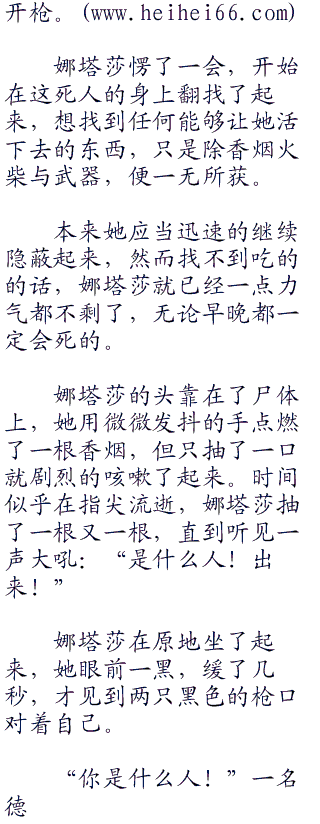 开枪。(www.heihei66.com)
娜塔莎愣了一会，开始
在这死人的身上翻找了起
来，想找到任何能够让她活
下去的东西，只是除香烟火
柴与武器，便一无所获。
本来她应当迅速的继续
隐蔽起来，然而找不到吃的
的话，娜塔莎就已经一点力
气都不剩了，无论早晚都一
定会死的。
娜塔莎的头靠在了尸体
上，她用微微发抖的手点燃
了一根香烟，但只抽了一口
就剧烈的咳嗽了起来。时间
似乎在指尖流逝，娜塔莎抽
了一根又一根，直到听见一
声大吼：“是什么人！出
来！”
娜塔莎在原地坐了起
来，她眼前一黑，缓了几
秒，才见到两只黑色的枪口
对着自己。
“你是什么人！”一名
德